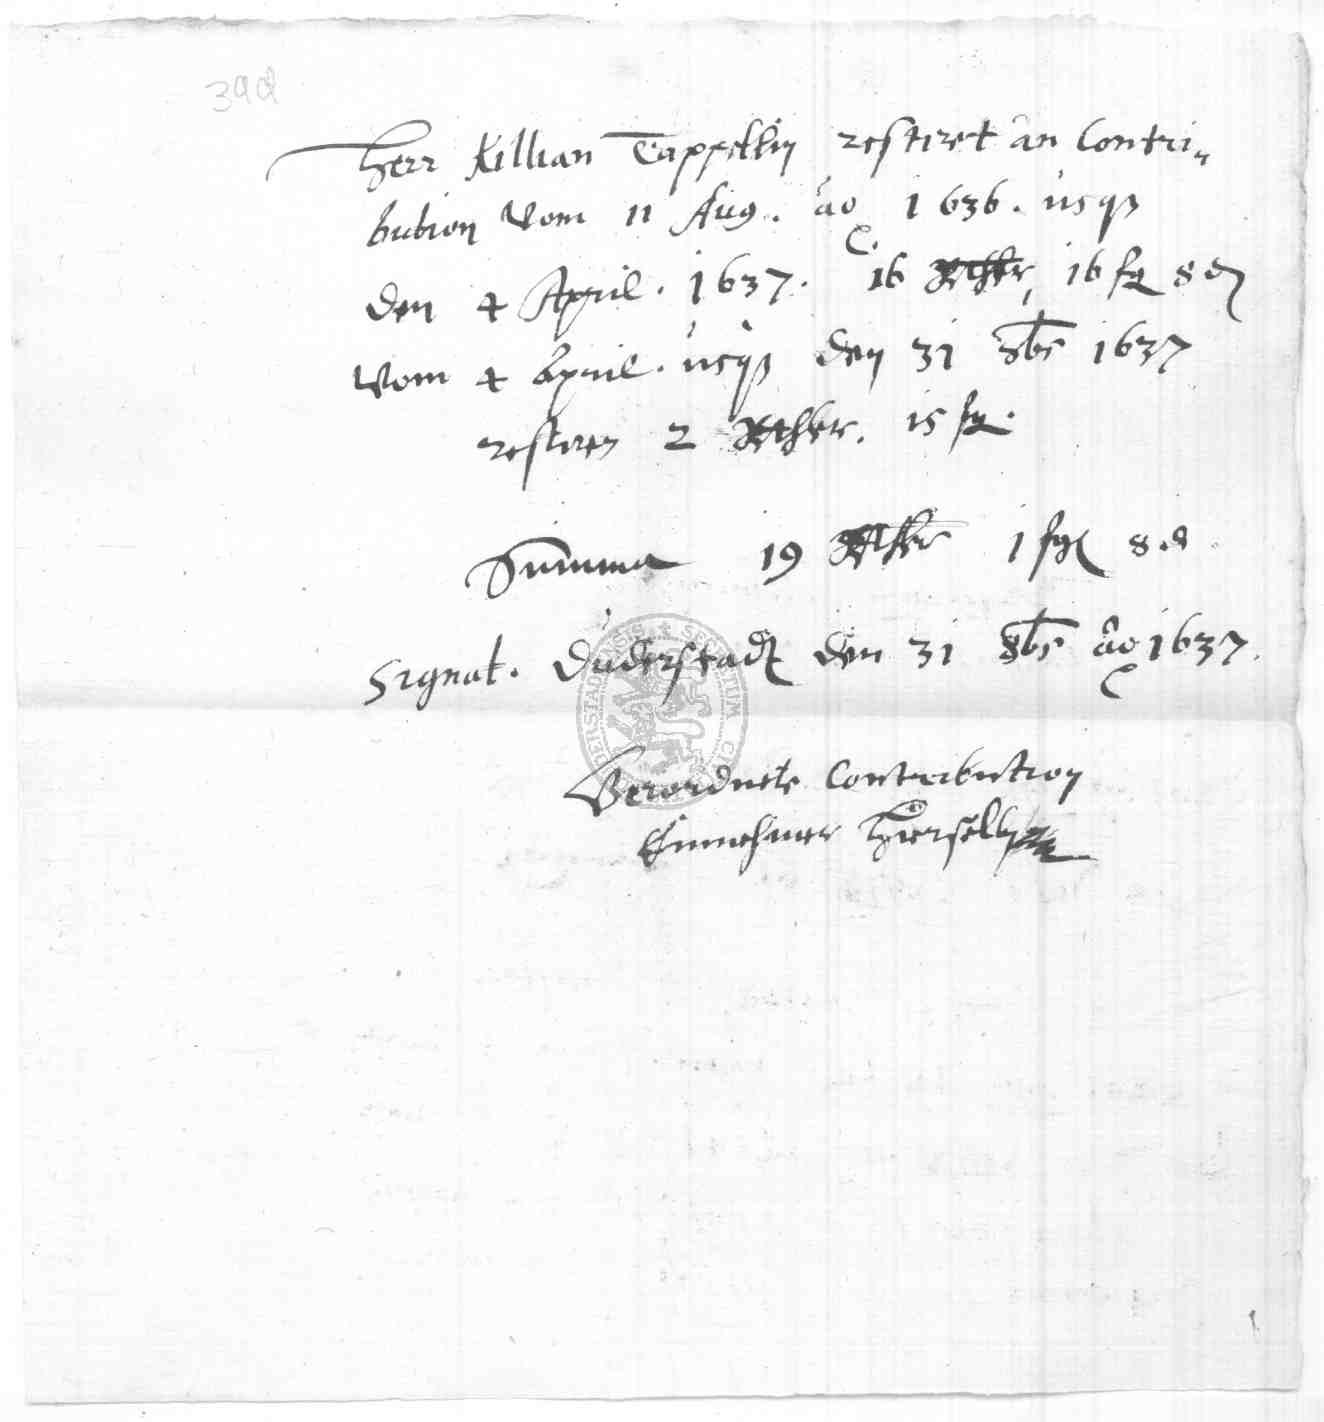 39d
Herr Killian Cappellen restiret an Contri-
bution Vom 11 Aug. ao 1636. usqz
den 4 April. 1637. 16 Rthlr, 16 sg 8 d
Vom 4 April. usqz den 31 8bs 1637
restiren 2 Rthlr. 15 sg.
Summa 19 Rthlr 1 sg 8 d
Signat. Duderstadt den 31 8bs ao 1637.
Verordnete Contribution
Einnehmer hierselbst
DERSTADENSIS + SECRETUM CI